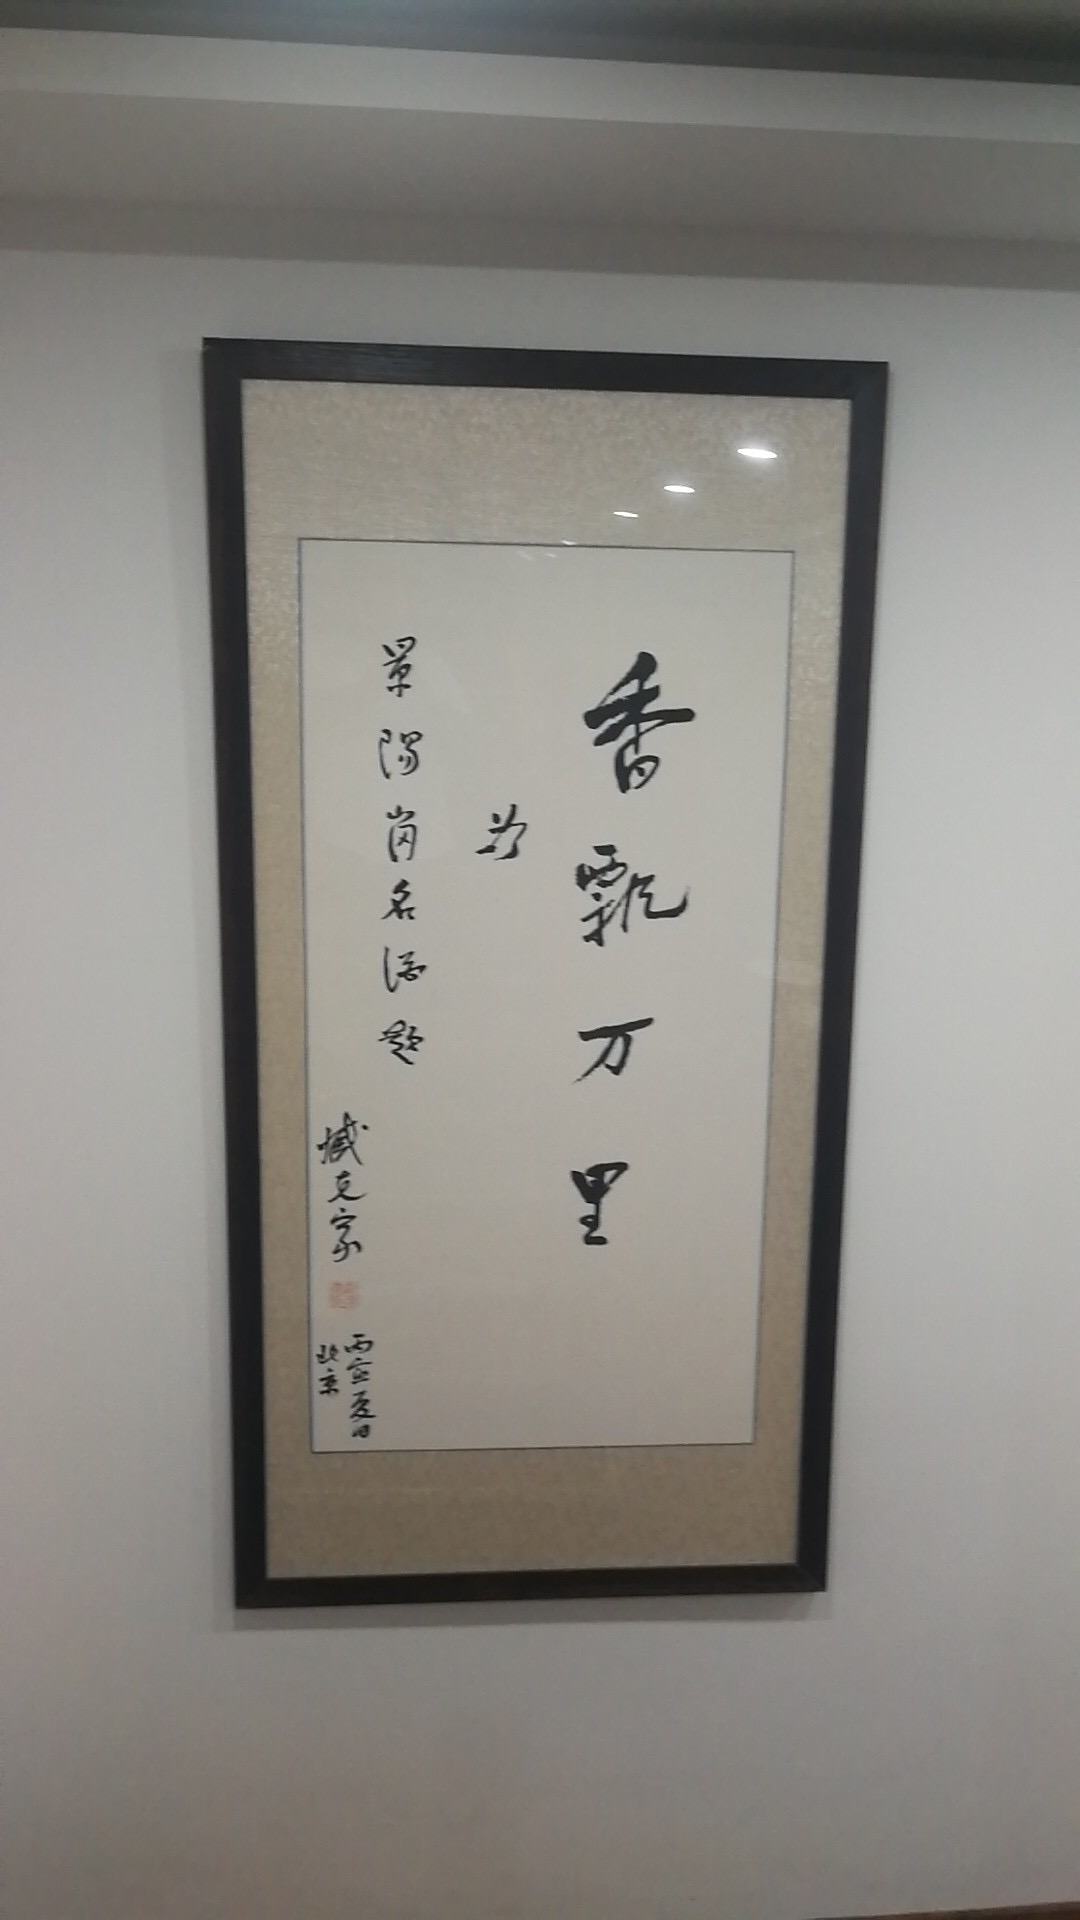 香飘万里
为
景阳岗名酒题
臧克家
丙寅夏日
北京